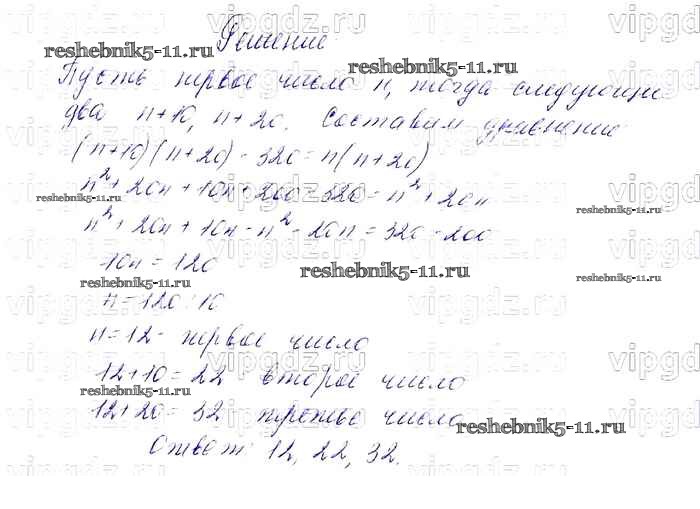 Решение
Пусть первое число n, тогда следующие
два n+10, n+20. Составим уравнение
(n+10)(n+20) - 320 = n(n+20)
n² + 20n + 10n + 200 - 320 = n² + 20n
n² + 20n + 10n - n² - 20n = 320 - 200
10n = 120
n = 120 : 10
n = 12 - первое число
12+10 = 22 второй число
12+20 = 32 третье число
Ответ: 12, 22, 32.
reshebnik5-11.ru
reshebnik5-11.ru
reshebnik5-11.ru
reshebnik5-11.ru
reshebnik5-11.ru
reshebnik5-11.ru
reshebnik5-11.ru
reshebnik5-11.ru
reshebnik5-11.ru
vipgdz.ru